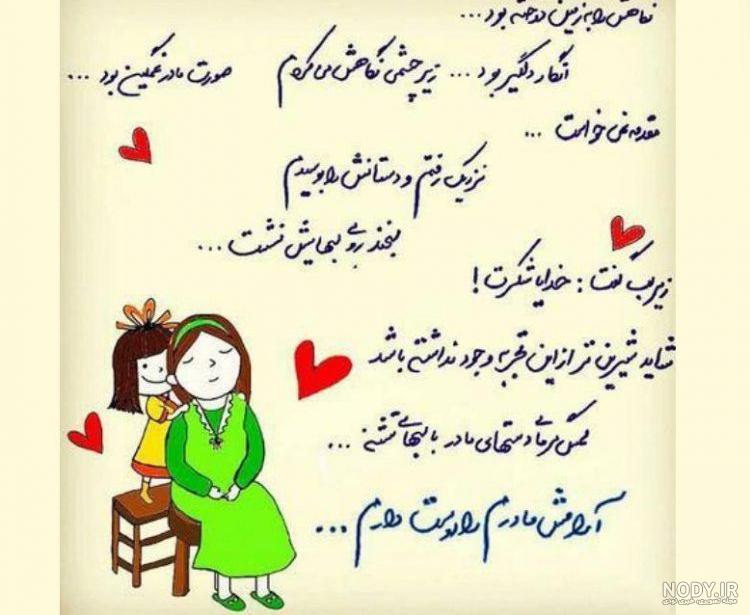 نگاهش را به زمین دوخته بود ...
انگار دلگیر بود ... زیر چشمی نگاهش می کردم
صورت مادر غمگین بود ...
مقدمه نمی خواست ...
نزدیک رفتم و دستانش را بوسیدم
لبخند بروی لبهایش نشست ...
زیر لب گفت : خدایا شکرت !
شاید شیرین تر از این تجربه وجود نداشته باشد
لمس گرمای دستهای مادر با لبهای تشنه ...
آرامش مادرم را دوست دارم ...
NODY.IR